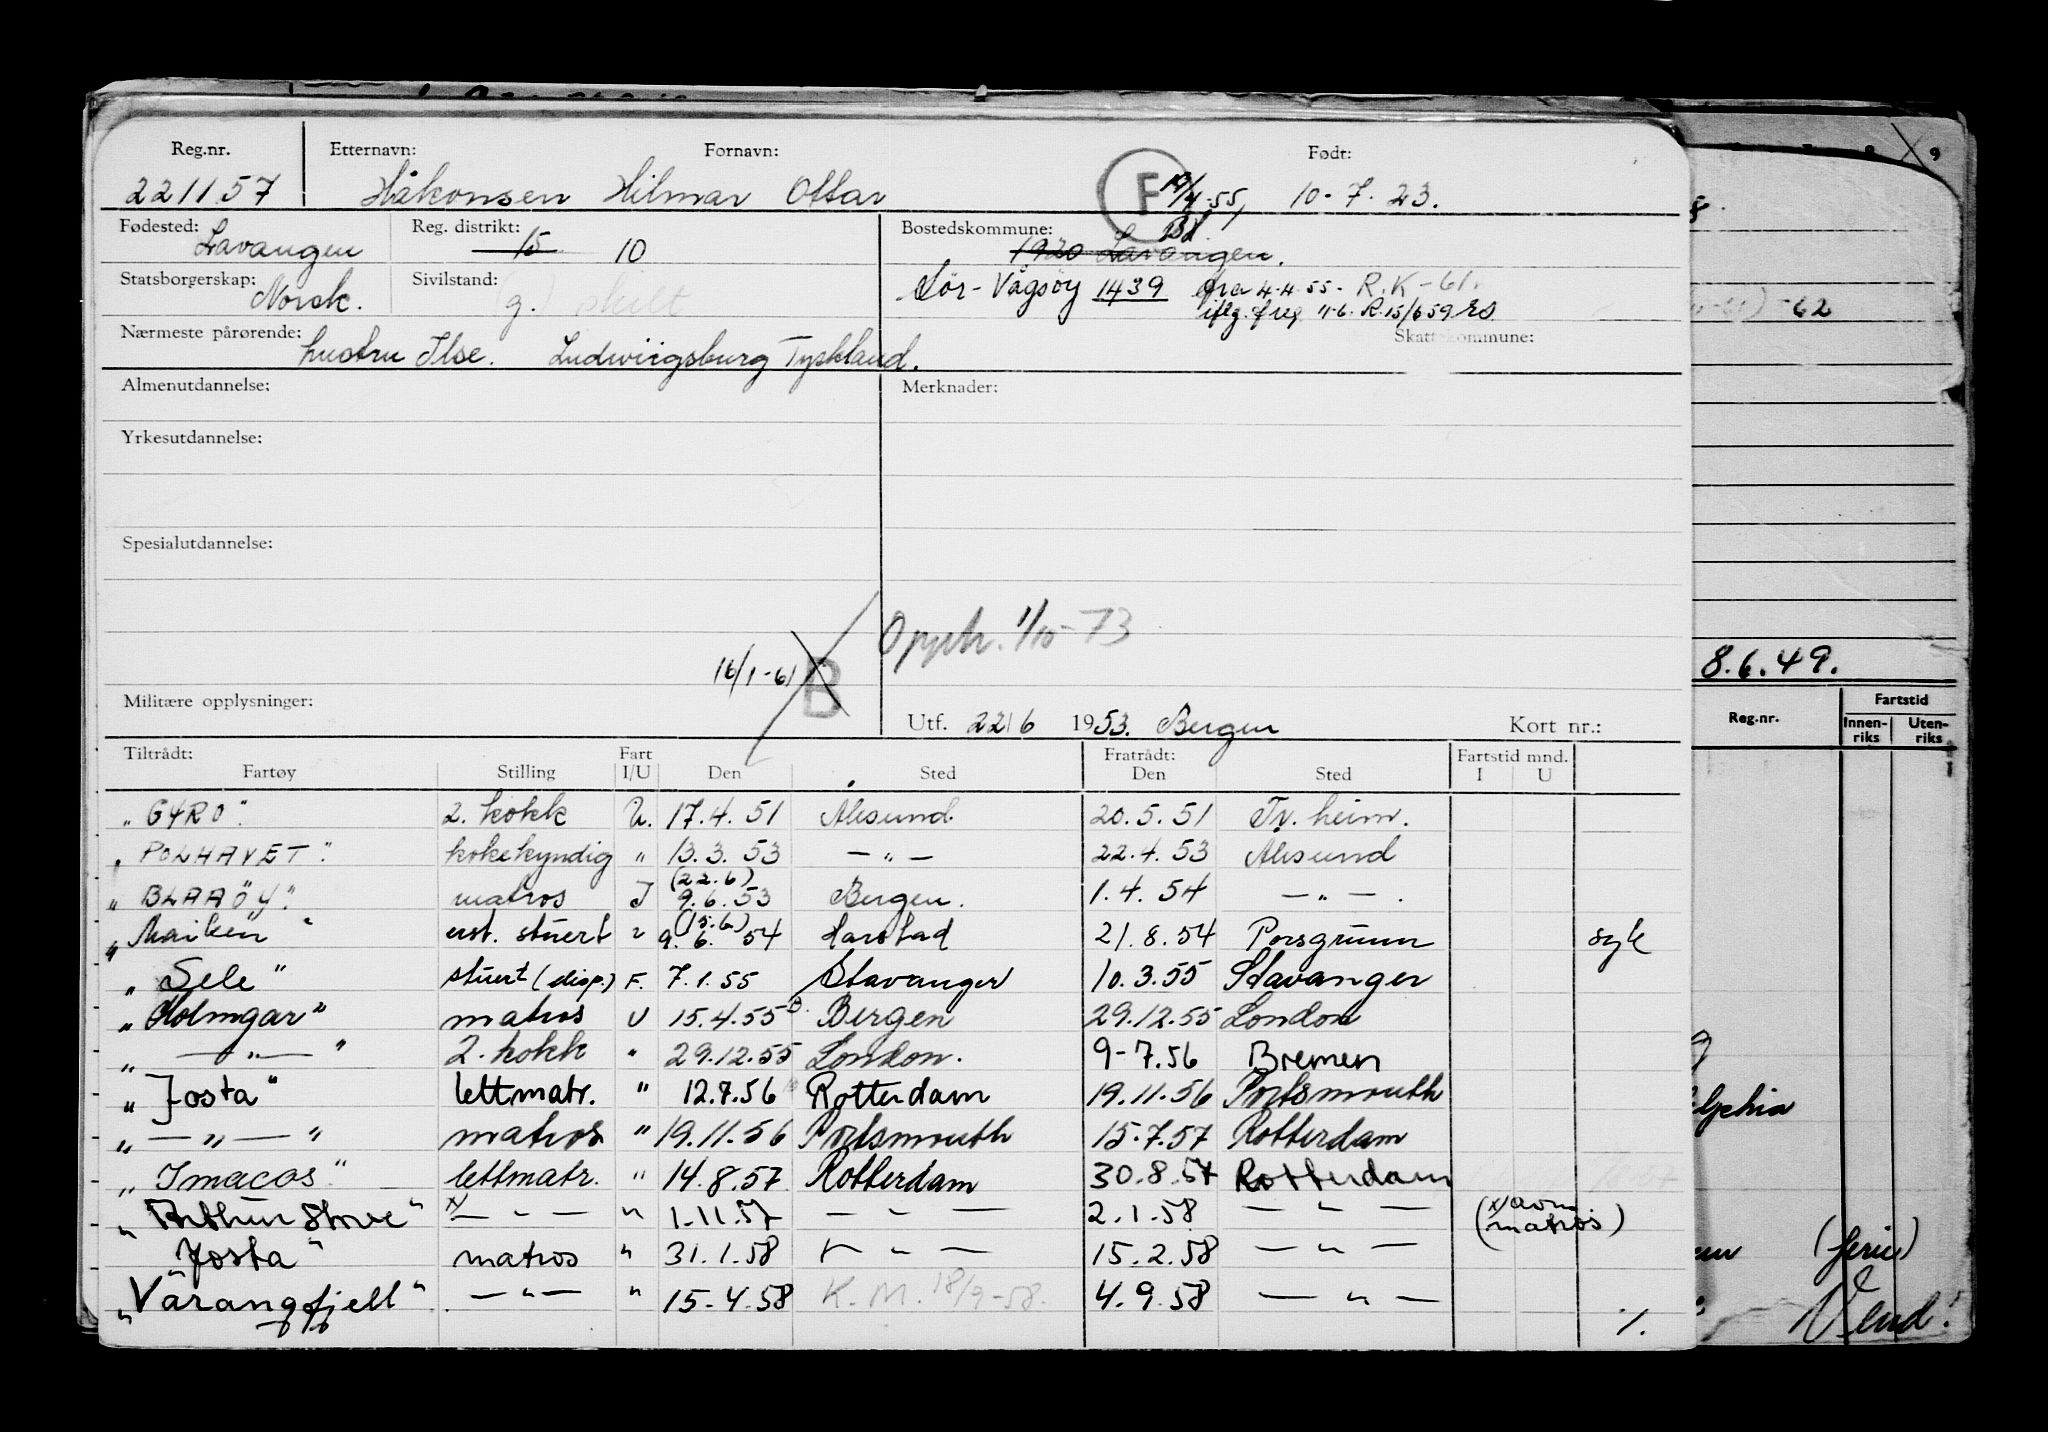 Reg.nr. Etternavn: Fornavn: Født:
221157 Håkonsen Hilmar Ottar F 19/4-55, 10-7.23.
Fødested: Lavangen Reg. distrikt: 15 10 Bostedskommune: 1920 Lavangen.
Statsborgerskap: Norsk. Sivilstand: (g.) skilt Sör-Vågsöy 1439 fra 4.4.55- R.K-61.
iflg. f reg 11-6. R.15/659
Nærmeste pårørende: hustru Ilse. Ludwiigsburg Tyskland. Skattekommune:
Almenutdannelse: Merknader:
Yrkesutdannelse:
Spesialutdannelse:
Oppstr. 1/10-73
16/1-61 B
Militære opplysninger: Utf. 22/6 1953. Bergen Kort nr.:
Tiltrådt: Fart Fratrådt: Fartstid mnd.
Fartøy Stilling I/U Den Sted Den Sted I U
"GYRO" 2. kokk U. 17.4.51 Ålesund 20.5.51 Tr.heim.
"POLHAVET" kokekyndig " 13.3.53 — " — 22.4.53 Ålesund
(22.6)
"BLAAÖY" matros I 9.6.53 Bergen. 1.4.54 — " — .
(15.6)
"Maiken" erst. stuert " 9.6.54 Harstad 21.8.54 Porsgrunn syk
"Sele" stuert (disp.) F. 7.1.55 Stavanger 10.3.55 Stavanger
"Holmgar" matros U 15.4.55 Bergen 29.12.55 London
" — " — " 2. kokk " 29.12.55 London. 9-7.56 Bremen
"Josta" lettmatr. " 12.7.56 Rotterdam 19.11.56 Portsmouth
" — " — " matros " 19.11.56 Portsmouth 15.7.57 Rotterdam
"Imacos" lettmatr. " 14.8.57 Rotterdam 30.8.57 Rotterdam
"Arthur Stove" x) — " — " 1.11.57 — " — 2.1.58 — " — (x) avm. matros)
"Josta" matros " 31.1.58 — " — 15.2.58 — " —
"Varangfjell" — " — " 15.4.58 K.M. 18/9-58. 4.9.58 — " —
./.
9
-62
8.6.49.
Reg.nr. Fartstid
Innenriks Utenriks
(ferie)
Vend!